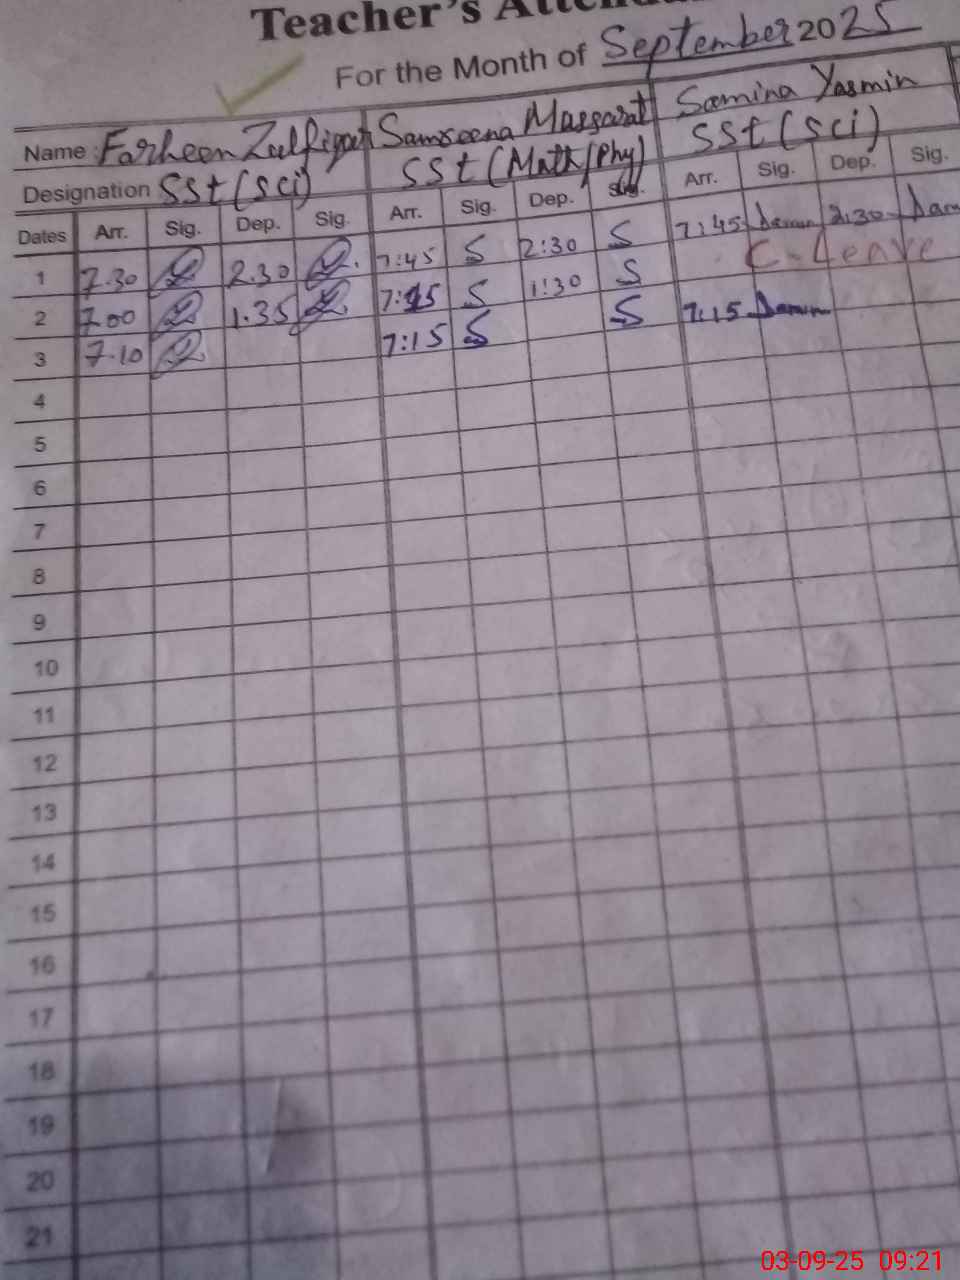 Teacher's
For the Month of September 2025
Name: Farheen Zulfiqar Samreena Massarat Samina Yasmin
Designation SSt (sci) SSt (Math/Phy) SSt (sci)
Dates Arr. Sig. Dep. Sig. Arr. Sig. Dep. Sig. Arr. Sig. Dep. Sig.
1 7.30 2.30 7:45 S 2:30 S 7:45 2:30
2 7.00 1.35 7:15 S 1:30 S C-Leave
3 7.10 7:15 S S 7:15
4
5
6
7
8
9
10
11
12
13
14
15
16
17
18
19
20
21
03-09-25 09:21